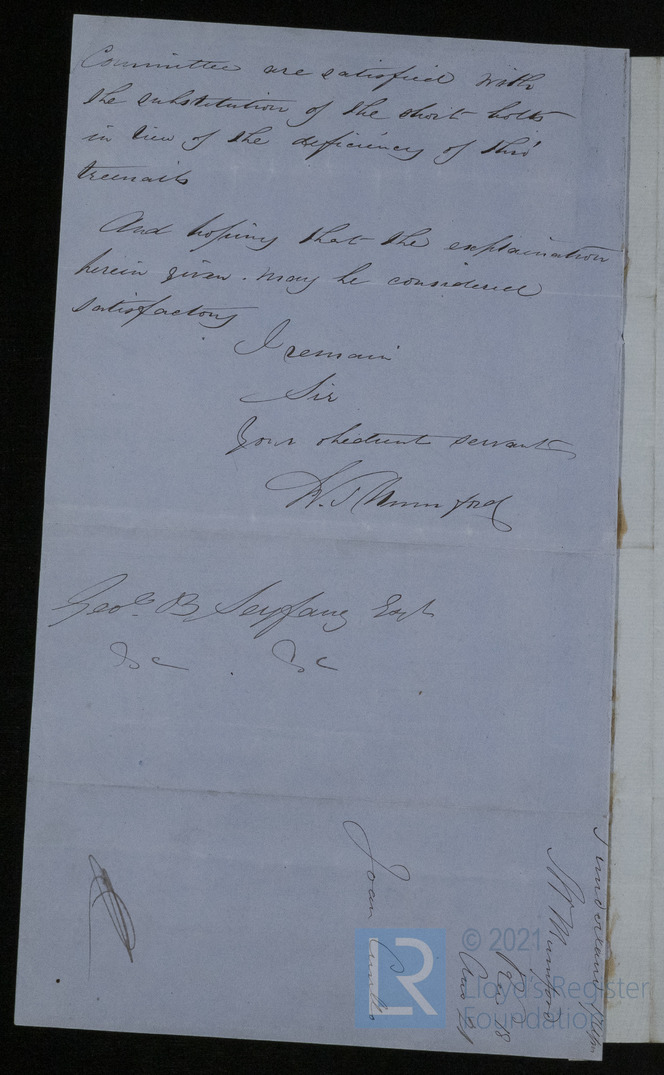 Committee are satisfied with
the substitution of the short bolts
in lieu of the deficiency of thro'
treenails
And hoping that the explaination
herein given may be considered
satisfactory
I remain
Sir
Your obedient servant
W. J Mumford
Geoe B Seyfang Esqr
&c . &c
Sunderland
Mr Mumford
Joan Cunllo
© 2021
Lloyd's Register
Foundation